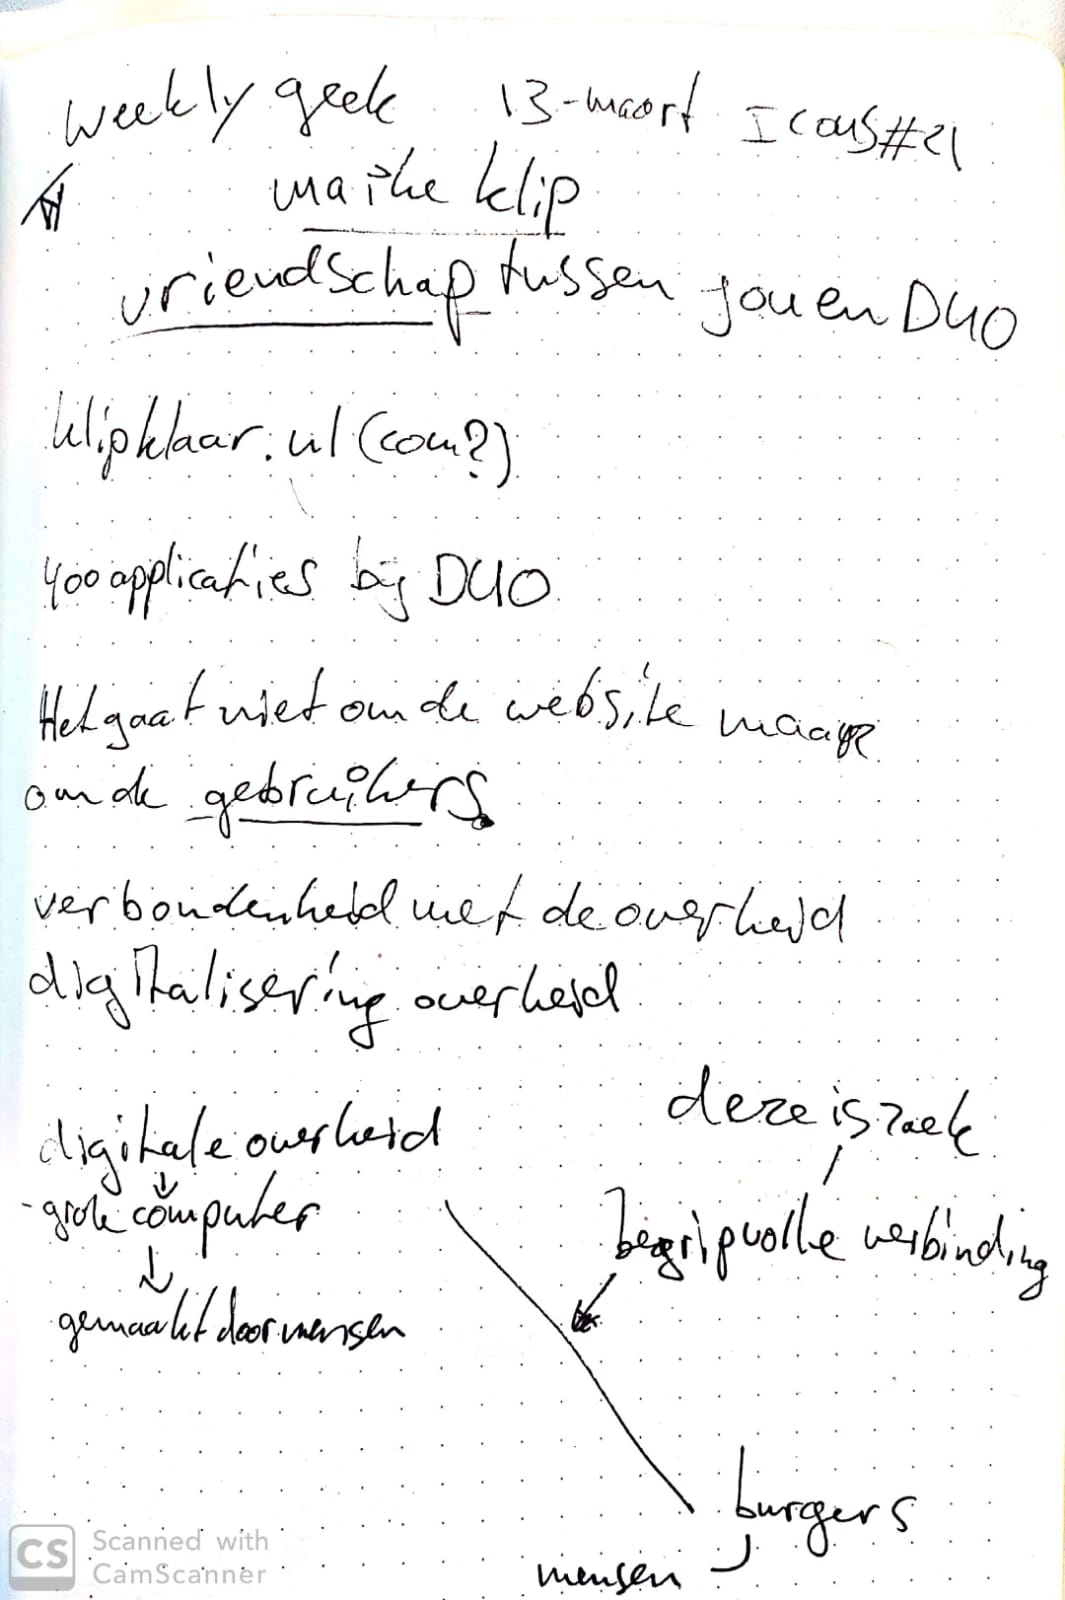 weekly geek 13-maart Icons#21
maike klip
vriendschap tussen jou en DUO
klipklaar.nl (com?)
400 applicaties bij DUO
Het gaat niet om de website maar
om de gebruikers.
verbondenheid met de overheid
digitalisering overheid
digitale overheid
- grote computer
gemaakt door mensen
deze is zoek
begripvolle verbinding
burgers
mensen
CS Scanned with
CamScanner